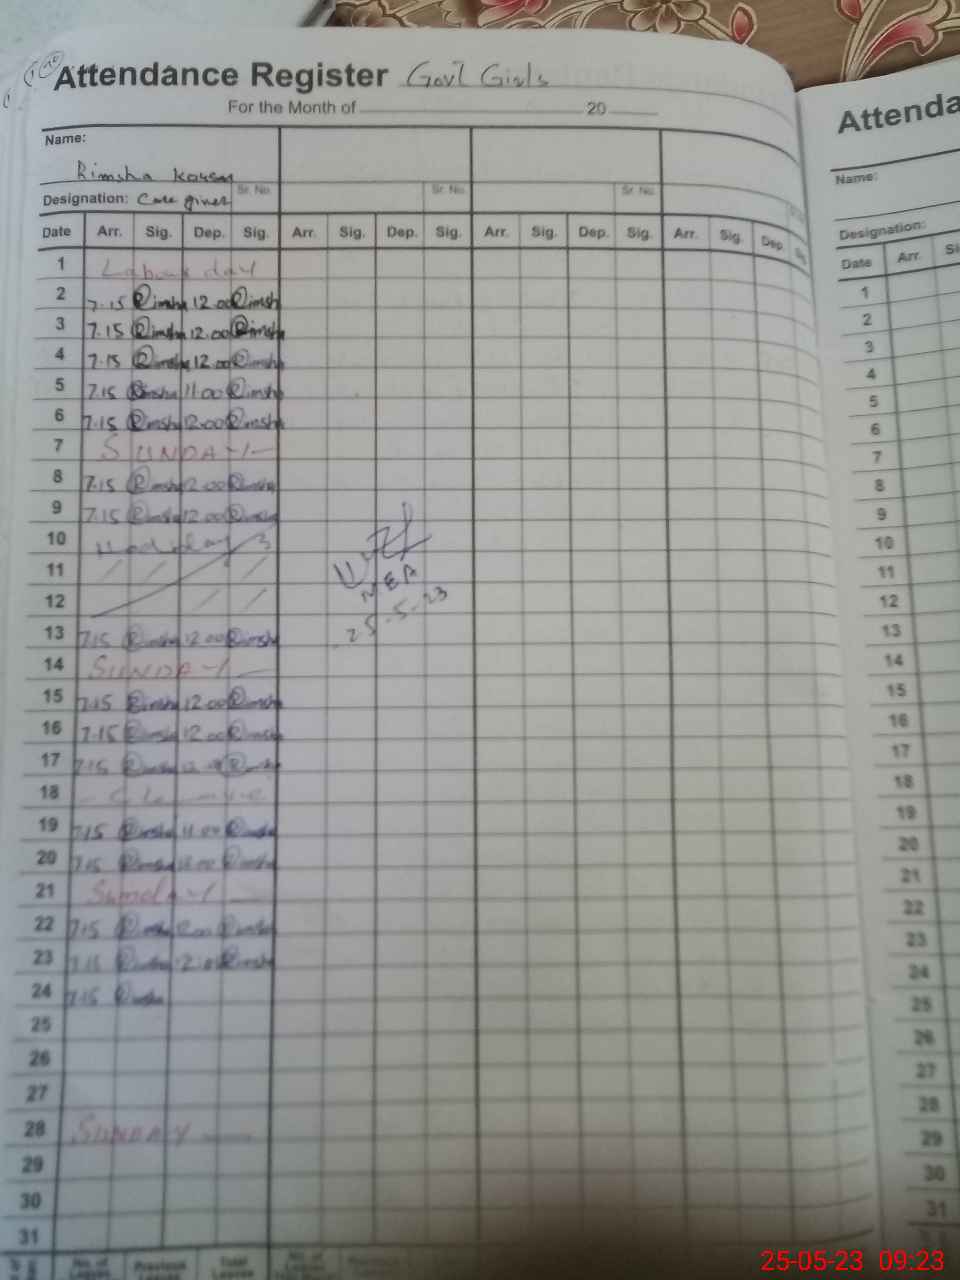 Attendance Register Govt Girls
For the Month of 20
Name:
Rimsha Kousar
Sr. No. Sr. No. Sr. No.
Designation: Care giver
Date Arr. Sig. Dep. Sig. Arr. Sig. Dep. Sig. Arr. Sig. Dep. Sig. Arr. Sig. Dep. Sig.
1 Labour day
2 7.15 Rimsha 12.00 Rimsha
3 7.15 Rimsha 12.00 Rimsha
4 7.15 Rimsha 12.00 Rimsha
5 7.15 Rimsha 11.00 Rimsha
6 7.15 Rimsha 12.00 Rimsha
7 SUNDAY
8 7.15 Rimsha 12.00 Rimsha
9 7.15 Rimsha 12.00 Rimsha
10
11
12
MEA
25-5-23
13 7.15 Rimsha 12.00 Rimsha
14 SUNDAY
15 7.15 Rimsha 12.00 Rimsha
16 7.15 Rimsha 12.00 Rimsha
17 7.15 Rimsha Rimsha
18
19 7.15 Rimsha 11.00 Rimsha
20 7.15 Rimsha Rimsha
21 Sunday
22 7.15 Rimsha 12.00 Rimsha
23 7.15 Rimsha 12.00 Rimsha
24 7.15 Rimsha
25
26
27
28 SUNDAY
29
30
31
No. of Leaves Previous Leaves Total Leaves No. of
Attenda
Name:
Designation:
Date Arr.
1
2
3
4
5
6
7
8
9
10
11
12
13
14
15
16
17
18
19
20
21
22
23
24
25
26
27
28
29
30
31
25-05-23 09:23